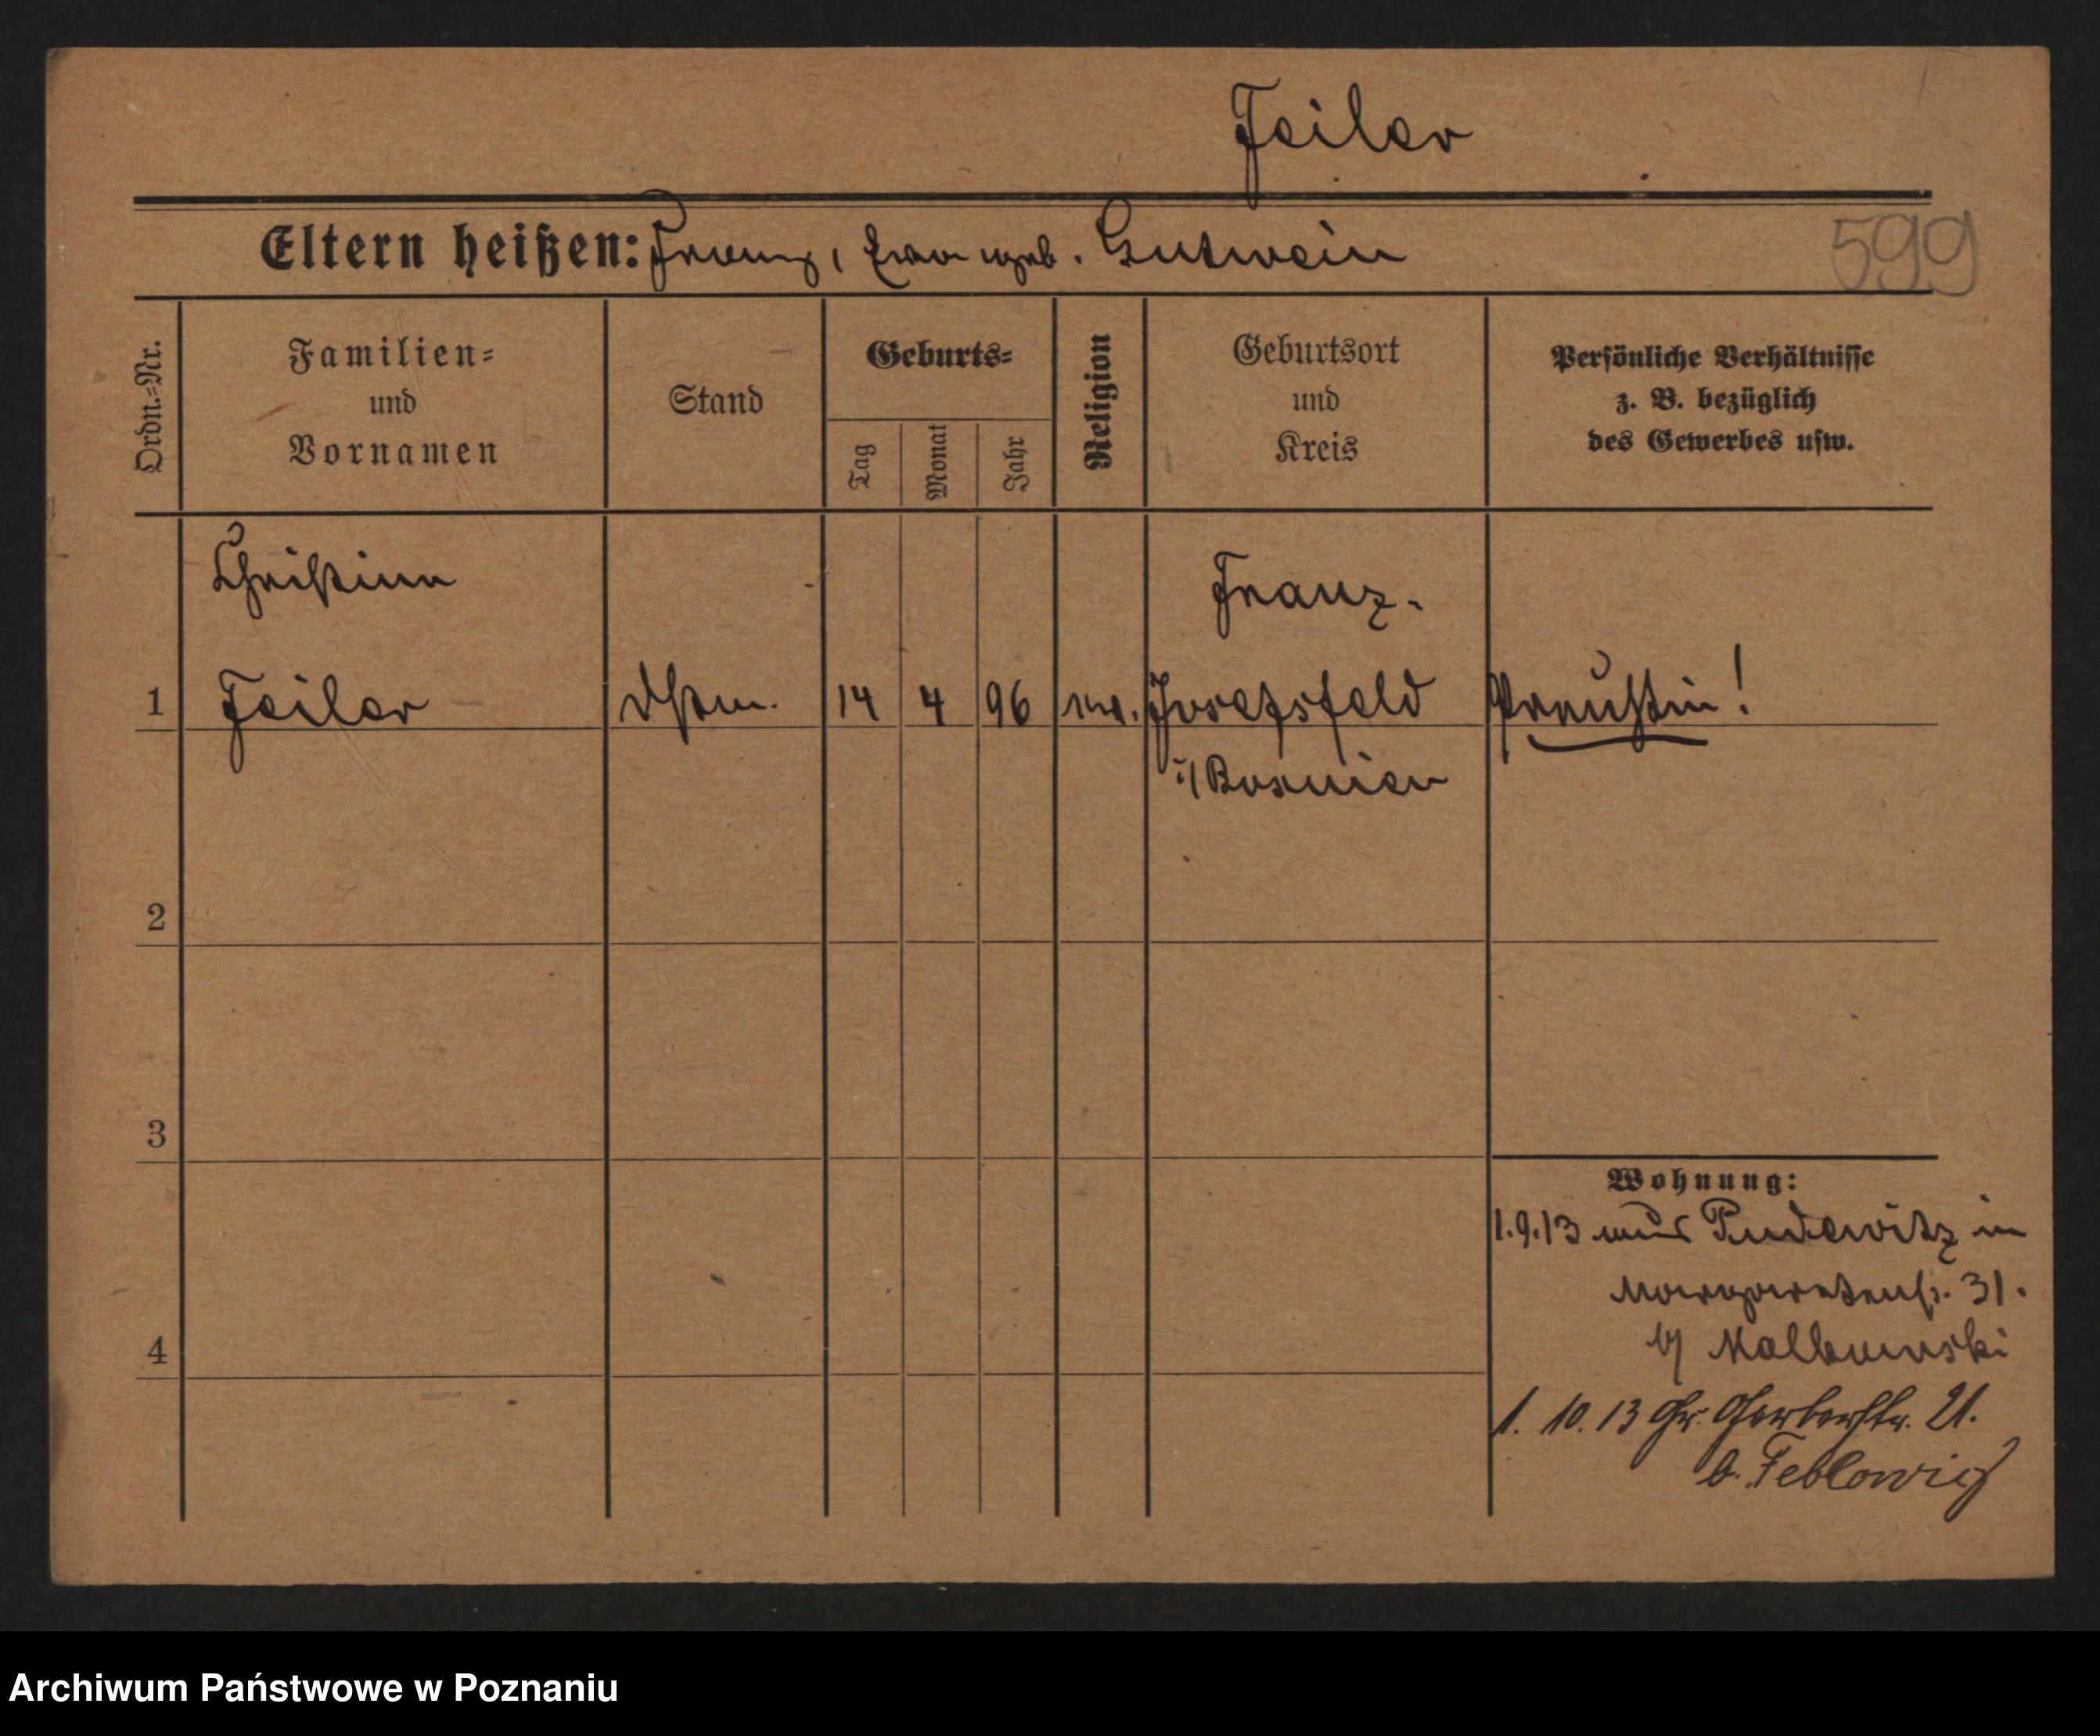 Feiler
Eltern heißen: Franz, Eva geb. Gutwein
599
Ordn.=Nr.
Familien=
und
Vornamen
Stand
Geburts=
Tag
Monat
Jahr
Religion
Geburtsort
und
Kreis
Persönliche Verhältnisse
z. B. bezüglich
des Gewerbes usw.
Christine
Franz-
1 Feiler Dstm. 14 4 96 Josefsfeld Preußin!
i/Bosnien
2
3
4
Wohnung:
1.9.13 aus Pudewitz in
Margaretenstr. 31.
b/
1. 10. 13 Gr. Gerberstr. 21.
b.
Archiwum Państwowe w Poznaniu